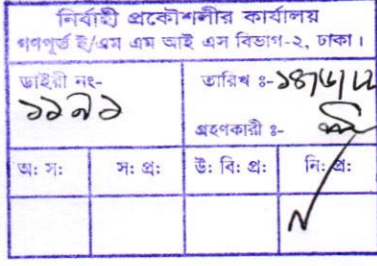 নির্বাহী প্রকৌশলীর কার্যালয়
গণপূর্ত ই/এম এম আই এস বিভাগ-২, ঢাকা।
ডাইরী নং-
১১৯১
তারিখ ঃ-
গ্রহণকারী ঃ-
অ: স: স: প্র: উ: বি: প্র: নি: প্র: